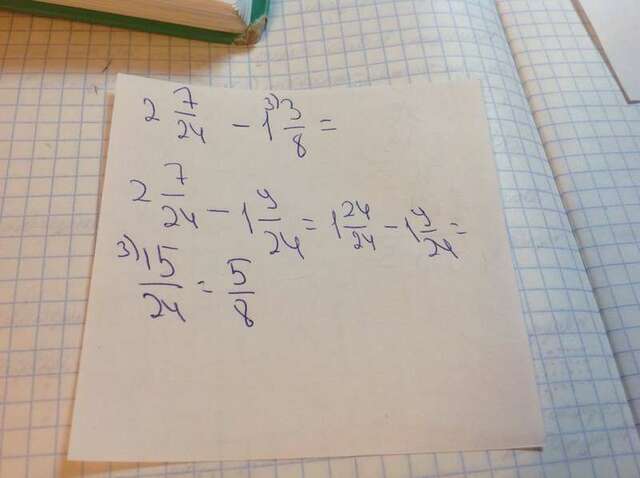 2 7/24 - 1 ³⁾3/8 =
2 7/24 - 1 9/24 = 1 24/24 - 1 9/24 =
³⁾15/24 = 5/8